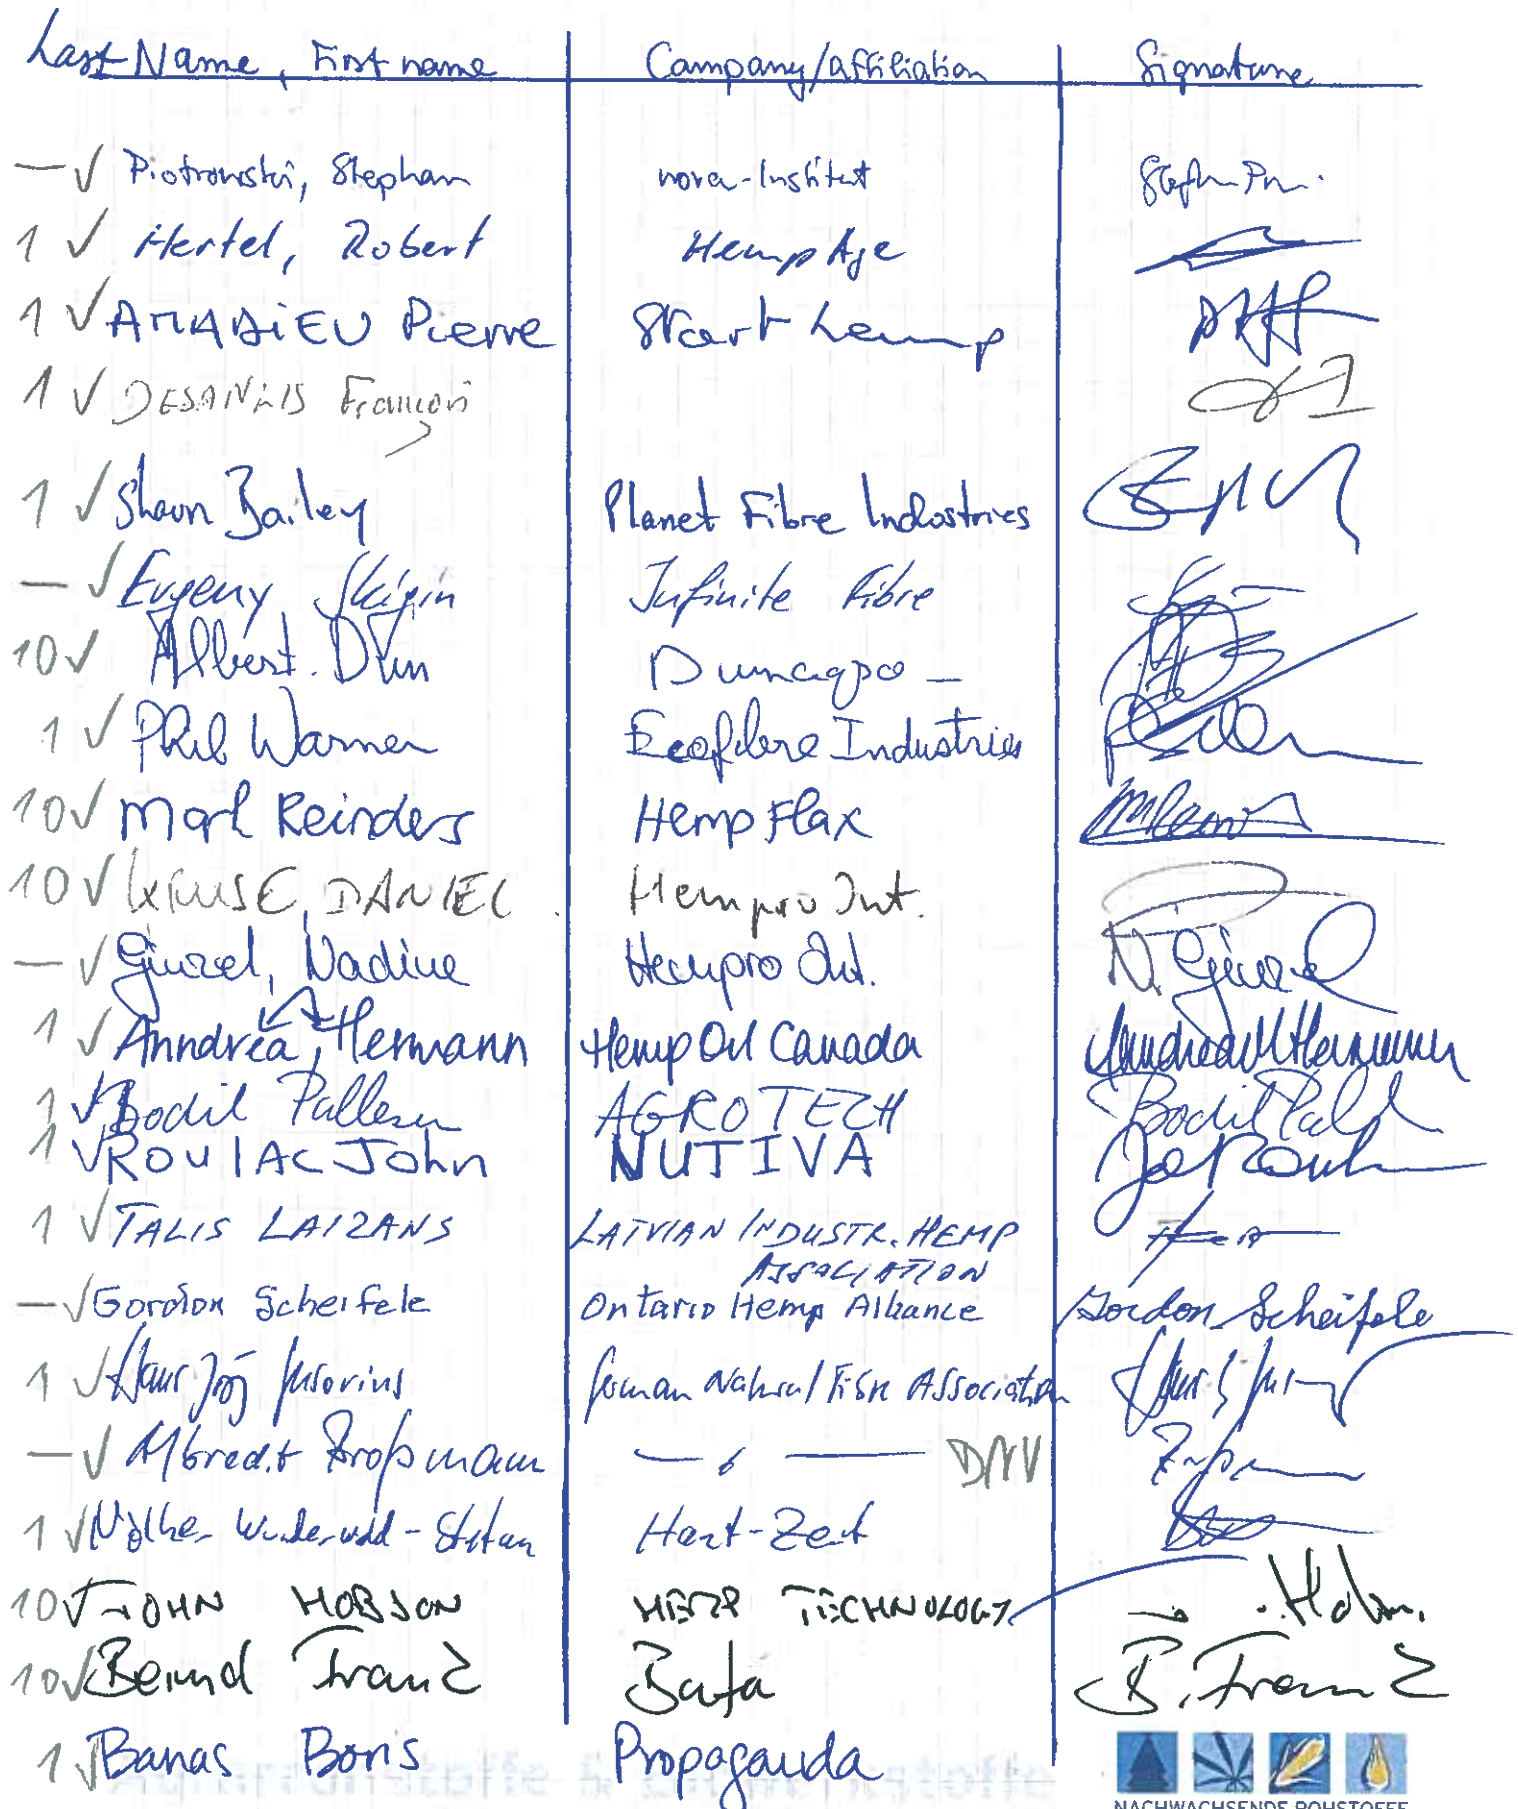 Last Name, First name Company/affiliation Signature
— √ Piotrowski, Stephan nova-Institut
1 √ Hertel, Robert HempAge
1 √ AMADIEU Pierre Start hemp
1 √ François
1 √ Shaun Bailey Planet Fibre Industries
— √ Evgeny Skigin Infinite Fibre
10 √ Albert. Dun Dunagro —
1 √ Phil Warner Ecofibre Industries
10 √ Mark Reinders HempFlax
10 √ KRUSE, DANIEL Hempro Int.
— √ Nadine Hempro Int. N.
1 √ Anndrea, Hermann Hemp Oil Canada Anndrea M Hermann
1 √ Bodil Pallesen AGROTECH Bodil
1 √ ROULAC John NUTIVA
1 √ TALIS LAIZANS LATVIAN INDUSTR. HEMP
ASSOCIATION
— √ Gordon Scheifele Ontario Hemp Alliance Gordon Scheifele
1 √ Hans Jörg German Natural Fibre Association
— √ Albrecht — —
1 √ Hanf-Zeit
10 √ JOHN HOBSON HEMP TECHNOLOGY
10 √ Bernd Franz Bafa B. Franz
1 √ Banas Boris Propaganda
NACHWACHSENDE ROHSTOFFE